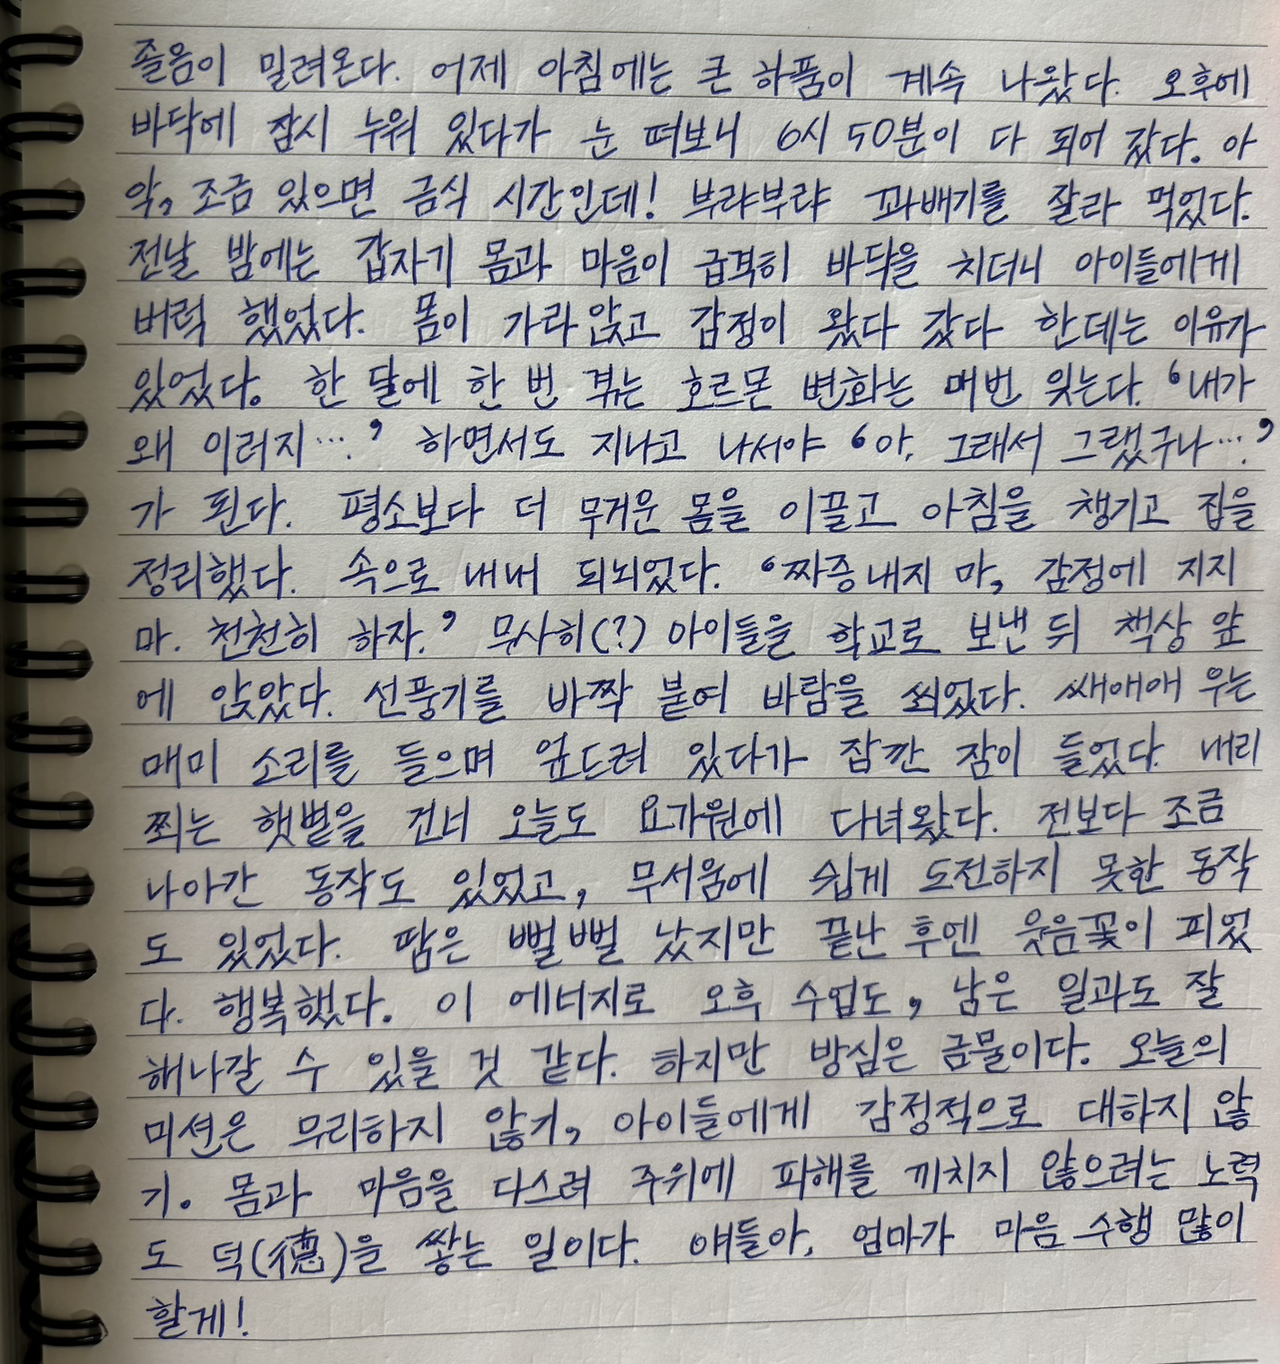 졸음이 밀려온다. 어제 아침에는 큰 하품이 계속 나왔다. 오후에
바닥에 잠시 누워 있다가 눈 떠보니 6시 50분이 다 되어 갔다. 아
악, 조금 있으면 금식 시간인데! 부랴부랴 꽈배기를 잘라 먹었다.
전날 밤에는 갑자기 몸과 마음이 급격히 바닥을 치더니 아이들에게
버럭 했었다. 몸이 가라앉고 감정이 왔다 갔다 한데는 이유가
있었다. 한 달에 한 번 겪는 호르몬 변화는 매번 잊는다. '내가
왜 이러지…' 하면서도 지나고 나서야 '아, 그래서 그랬구나….'
가 된다. 평소보다 더 무거운 몸을 이끌고 아침을 챙기고 집을
정리했다. 속으로 내내 되뇌었다. '짜증내지 마, 감정에 지지
마. 천천히 하자.' 무사히(?) 아이들을 학교로 보낸 뒤 책상 앞
에 앉았다. 선풍기를 바짝 붙여 바람을 쐬었다. 쌔애애 우는
매미 소리를 들으며 엎드려 있다가 잠깐 잠이 들었다. 내리
쬐는 햇볕을 건너 오늘도 요가원에 다녀왔다. 전보다 조금
나아간 동작도 있었고, 무서움에 쉽게 도전하지 못한 동작
도 있었다. 땀은 뻘뻘 났지만 끝난 후엔 웃음꽃이 피었
다. 행복했다. 이 에너지로 오후 수업도, 남은 일과도 잘
해나갈 수 있을 것 같다. 하지만 방심은 금물이다. 오늘의
미션은 무리하지 않기, 아이들에게 감정적으로 대하지 않
기. 몸과 마음을 다스려 주위에 피해를 끼치지 않으려는 노력
도 덕(德)을 쌓는 일이다. 얘들아, 엄마가 마음 수행 많이
할게!